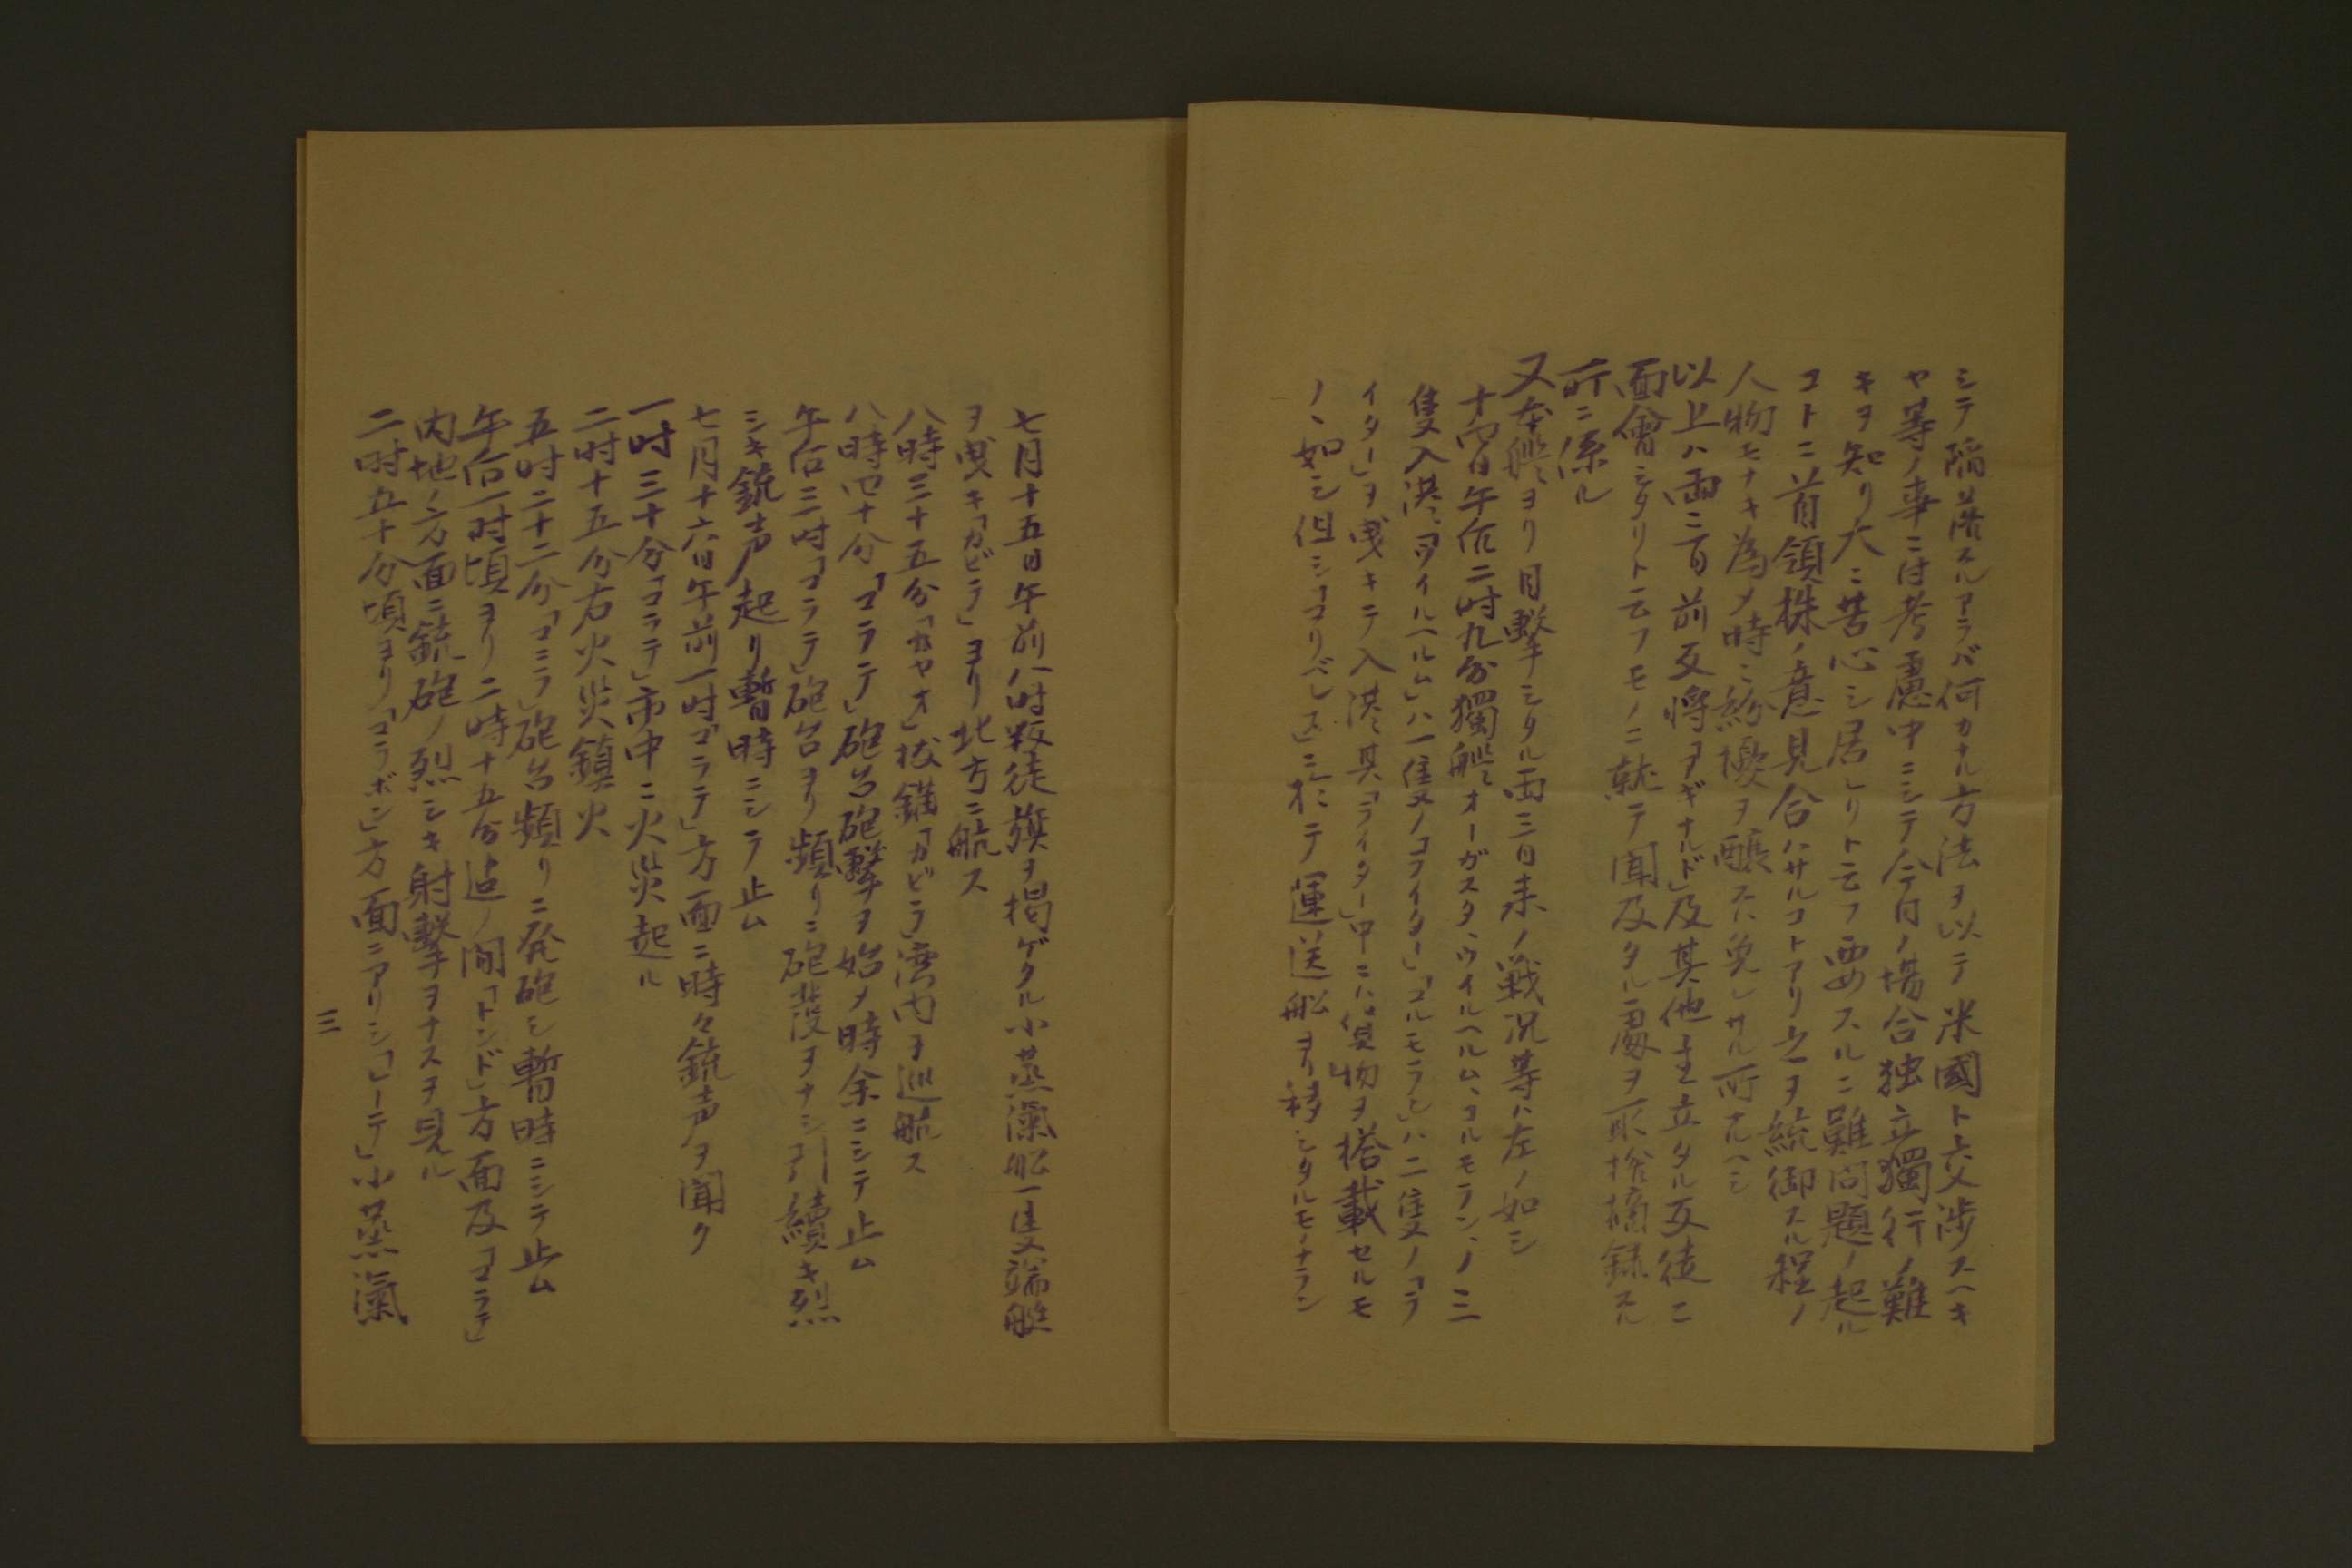 シテ陥落スルアラバ何カナル方法ヲ以テ米國ト交渉スヘキ
ヤ等ノ事ニ付考慮中ニシテ今日ノ場合独立獨行ノ難
キヲ知リ大ニ苦心シ居レリト云フ要スルニ難問題ノ起ル
コトニ首領株ノ意見合ハサルコトアリ之ヲ統御スル程ノ
人物モナキ為メ時ニ紛擾ヲ醸スハ免レサル所ナルヘシ
以上ハ両三日前反将「アギナルド」及其他主立タル反徒ニ
面會シタリト云フモノニ就テ聞及タル處ヲ取捨摘録スル
所ニ係ル
又本艦ヨリ目撃シタル両三日来ノ戦況等ハ左ノ如シ
十四日午后二時九分獨艦オーガスタ、ウイルヘルム、コルモラン、ノ三
隻入港「ウイルヘルム」ハ一隻ノ「ライター」「コルモラン」ハ二隻ノ「ラ
イター」ヲ曳キテ入港其「ライター」中ニハ貨物ヲ搭載セルモ
ノヽ如シ但シ「マリベレス」ニ於テ運送船ヨリ移シタルモノナラン
七月十五日午前八時叛徒旗ヲ掲ゲタル小蒸滊船一隻端艇
ヲ曳キ「カビテ」ヨリ北方ニ航ス
八時三十五分「カヤオ」抜錨「カビテ」湾内ヲ巡航ス
八時四十分「マラテ」砲台砲撃ヲ始メ時余ニシテ止ム
午后三時「マラテ」砲台ヨリ頻リニ砲發ヲナシ引續キ烈
シキ銃声起リ暫時ニシテ止ム
七月十六日午前一時「マラテ」方面ニ時々銃声ヲ聞ク
一時三十分「マラテ」市中ニ火災起ル
二時十五分右火災鎮火
五時二十二分「マニラ」砲台頻リニ発砲シ暫時ニシテ止ム
午后一時頃ヨリ二時十五分迄ノ間「トンド」方面及「マラテ」
内地ノ方面ニ銃砲ノ烈シキ射撃ヲナスヲ見ル
二時五十分頃ヨリ「マラボン」方面ニアリシ「レーテ」小蒸滊
三